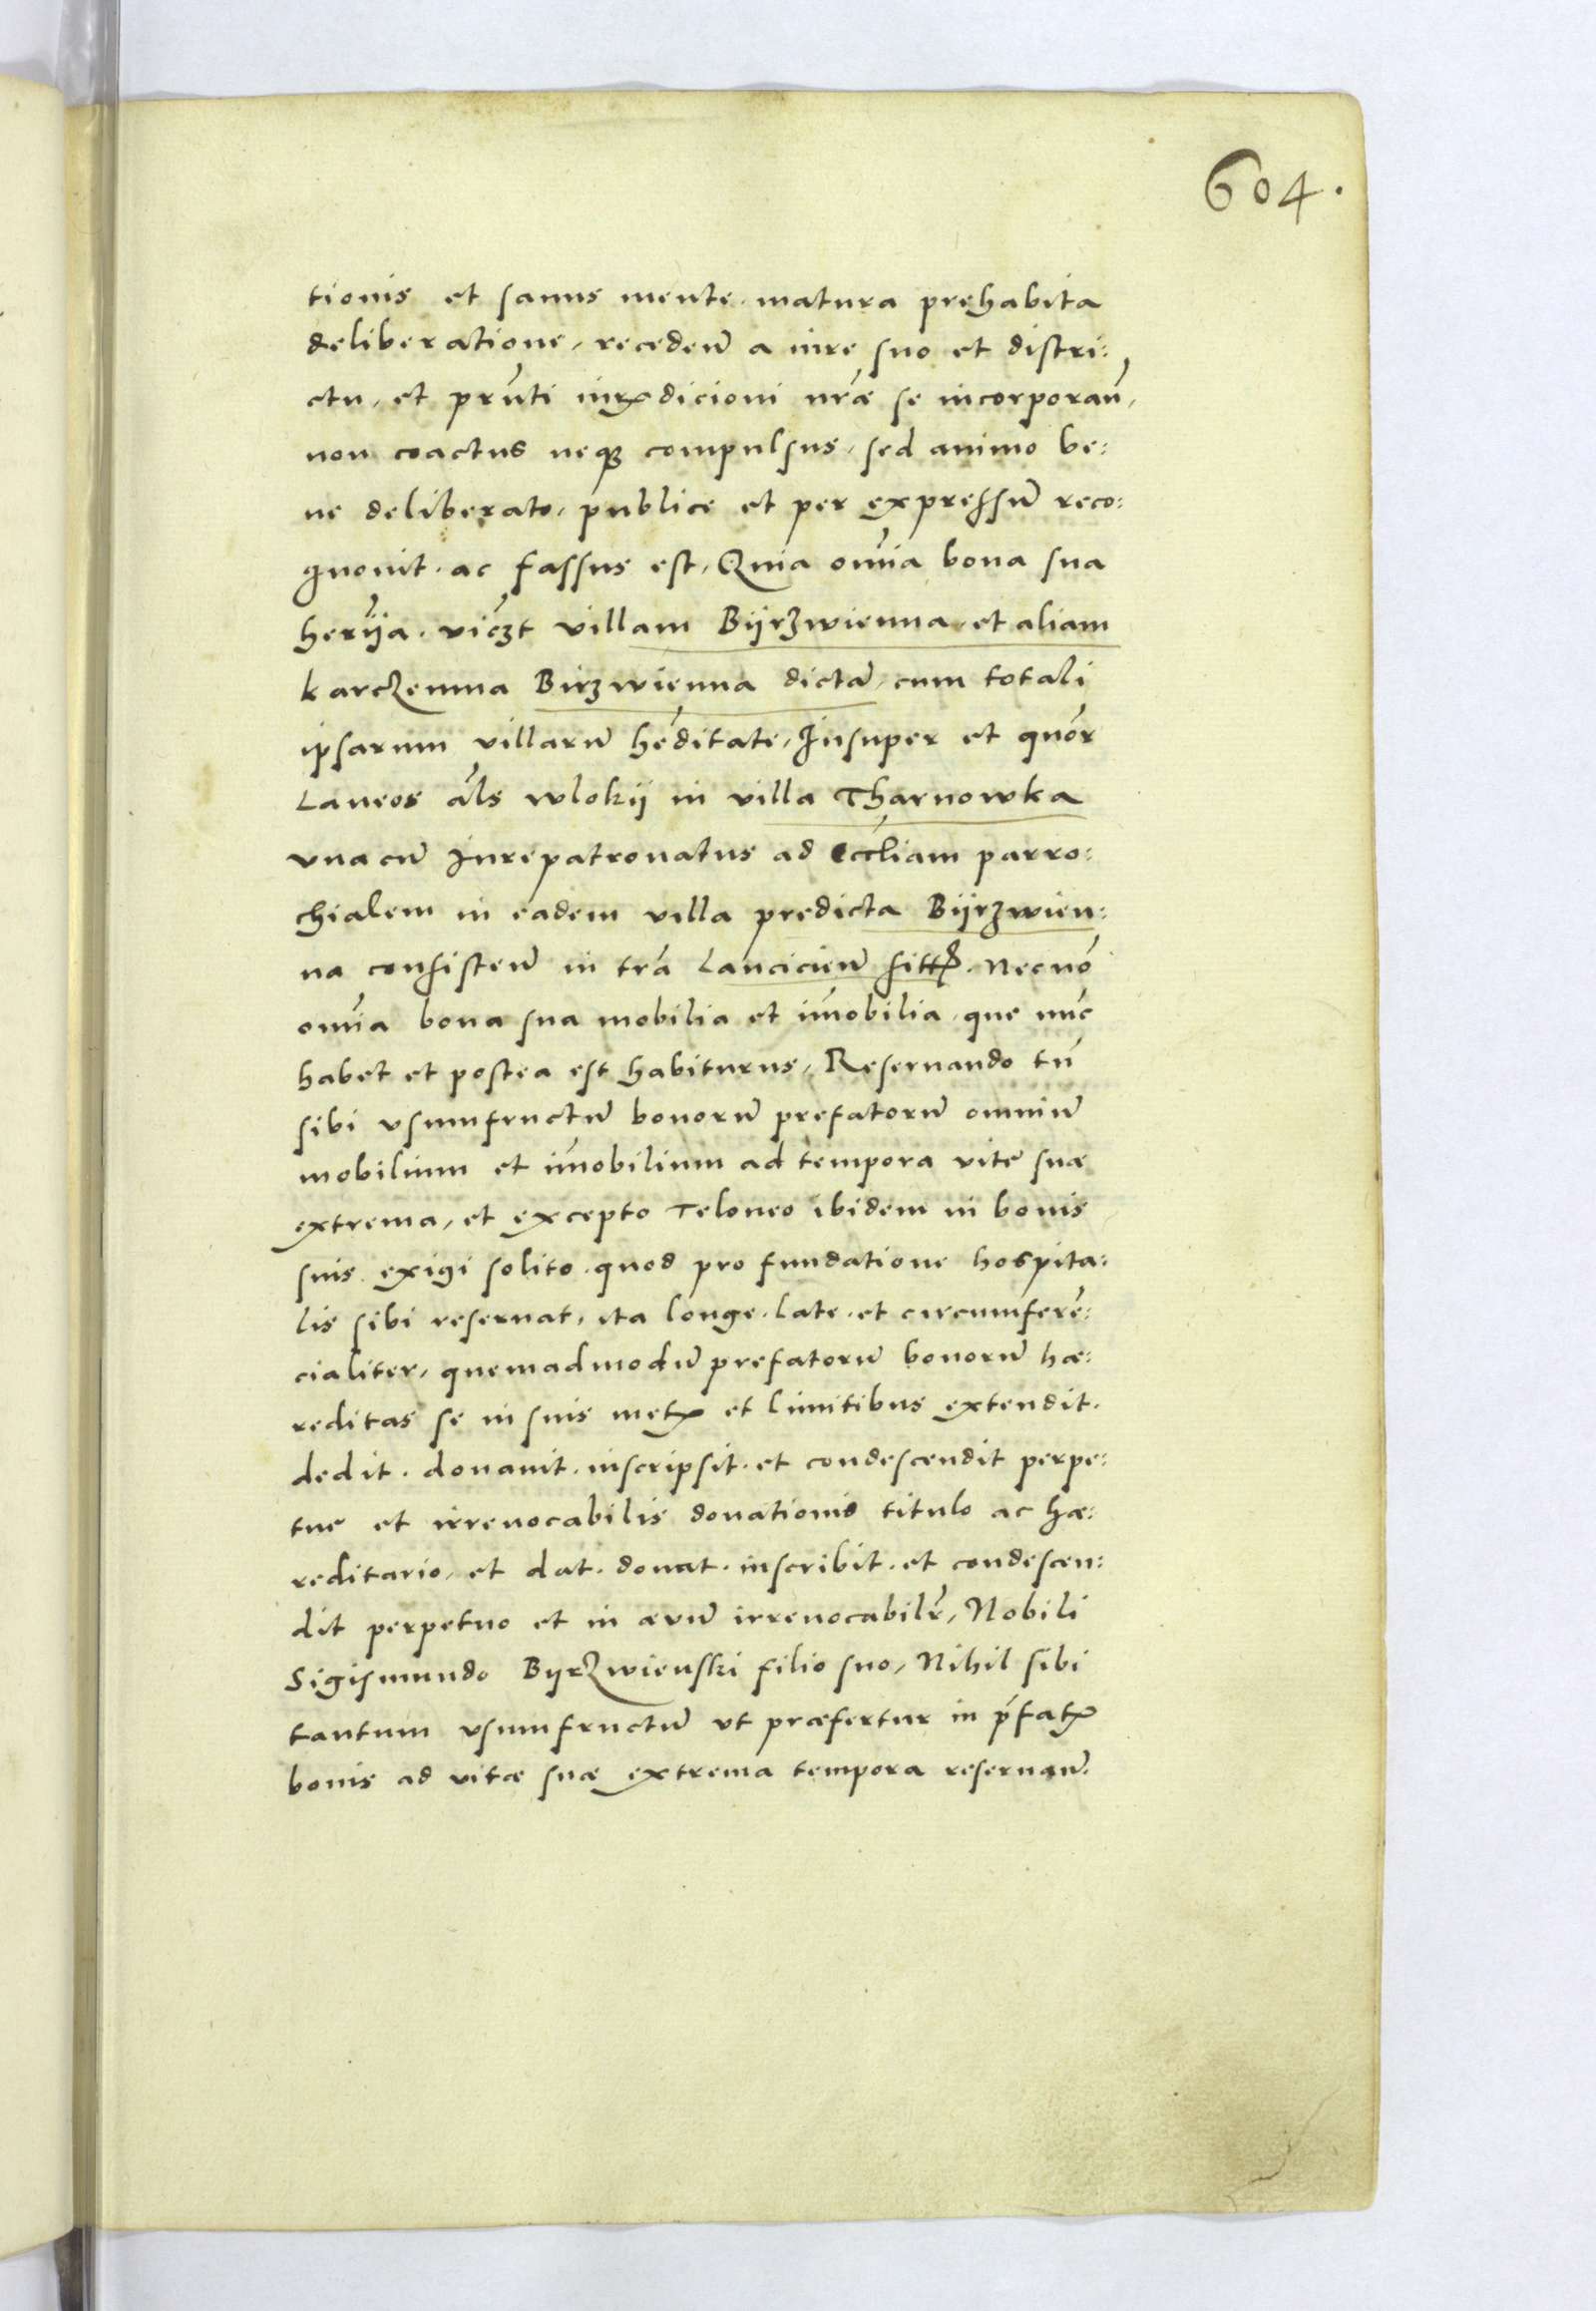 604.
tionis et sanus mente. matura prehabita
deliberatione, recedeñ a iure suo et distri:
ctu, et prñti iurisdicioni nrãe se incorporañ,
non coactus neqʒ compulsus, sed animo be:
ne deliberato, publice et per expressũ reco:
gnouit. ac fassus est, Quia om̃ia bona sua
herãia. vicʒt villam Bÿrzwienna, et aliam
karczemna Birzwienna dictã, cum totali
ipsarum villarũ hẽditate, Insuper et quõr
Laneos ãls wlokÿ in villa Tharnowka
vna cũ Iurepatronatus ad Eccliam parro:
chialem in eadem villa predicta Bÿrzwien:
na consisteñ in trã Lancicieñ sitt. Necnõ
om̃ia bona sua mobilia et im̃obilia, que nũc
habet et postea est habiturus, Reseruando tñ
sibi vsumfructũ bonorũ prefatorũ omniũ
mobilium et im̃obilium ad tempora vite suæ
extrema, et excepto Teloneo ibidem in bonis
suis exigi solito. quod pro fundatione hospita:
lis sibi reseruat, ita longe. late. et circumferẽ:
cialiter, quemadmodũ prefatorũ bonorũ hæ:
reditas se in suis metis et limitibus extendit.
dedit. donauit. inscripsit. et condescendit perpe:
tue et irreuocabilis donationis titulo ac hæ:
reditario, et dat. donat. inscribit. et condescen:
dit perpetuo et in ævũ irreuocabilr̃, Nobili
Sigismundo Byrzwienski filio suo, Nihil sibi
tantum vsumfructũ vt præfertur in p̃fatis
bonis ad vitæ suæ extrema tempora reseruañ.